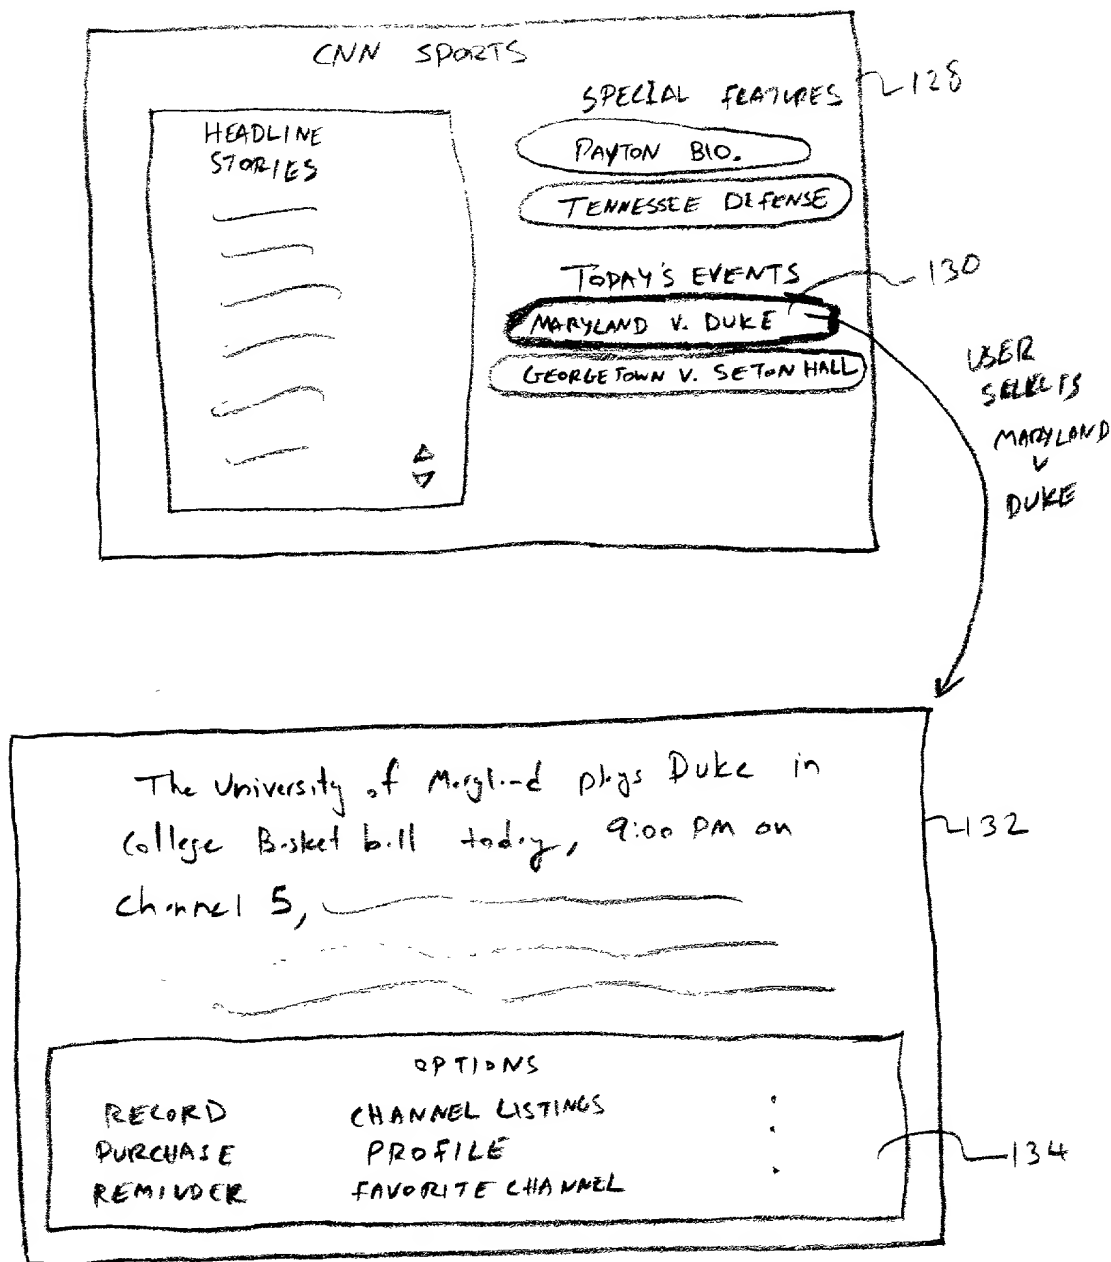 CNN SPORTS
128
HEADLINE
STORIES
SPECIAL FEATURES
PAYTON BIO.
TENNESSEE DEFENSE
TODAY'S EVENTS
130
MARYLAND V. DUKE
GEORGETOWN V. SETON HALL
USER
SELECTS
MARYLAND
V
DUKE
The University of Maryland plays Duke in
College Basketball today, 9:00 PM on
Channel 5,
132
OPTIONS
RECORD CHANNEL LISTINGS
PURCHASE PROFILE
REMINDER FAVORITE CHANNEL
134